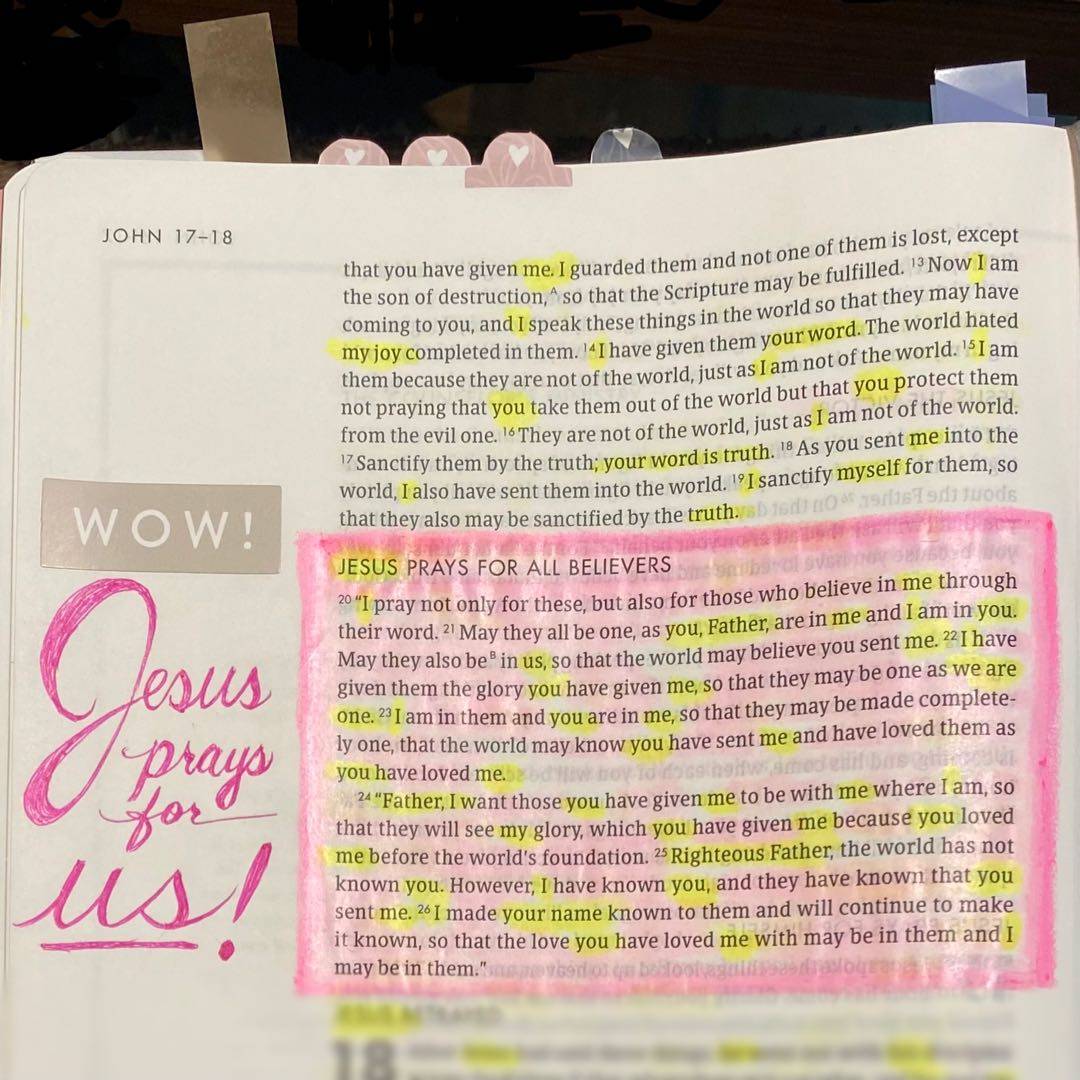 JOHN 17–18
that you have given me. I guarded them and not one of them is lost, except
the son of destruction,ᴬ so that the Scripture may be fulfilled. ¹³ Now I am
coming to you, and I speak these things in the world so that they may have
my joy completed in them. ¹⁴ I have given them your word. The world hated
them because they are not of the world, just as I am not of the world. ¹⁵ I am
not praying that you take them out of the world but that you protect them
from the evil one. ¹⁶ They are not of the world, just as I am not of the world.
¹⁷ Sanctify them by the truth; your word is truth. ¹⁸ As you sent me into the
world, I also have sent them into the world. ¹⁹ I sanctify myself for them, so
that they also may be sanctified by the truth.
WOW!
Jesus
prays
for
us!
JESUS PRAYS FOR ALL BELIEVERS
²⁰ “I pray not only for these, but also for those who believe in me through
their word. ²¹ May they all be one, as you, Father, are in me and I am in you.
May they also beᴮ in us, so that the world may believe you sent me. ²² I have
given them the glory you have given me, so that they may be one as we are
one. ²³ I am in them and you are in me, so that they may be made complete-
ly one, that the world may know you have sent me and have loved them as
you have loved me.
²⁴ “Father, I want those you have given me to be with me where I am, so
that they will see my glory, which you have given me because you loved
me before the world's foundation. ²⁵ Righteous Father, the world has not
known you. However, I have known you, and they have known that you
sent me. ²⁶ I made your name known to them and will continue to make
it known, so that the love you have loved me with may be in them and I
may be in them.”
JESUS BETRAYED
18